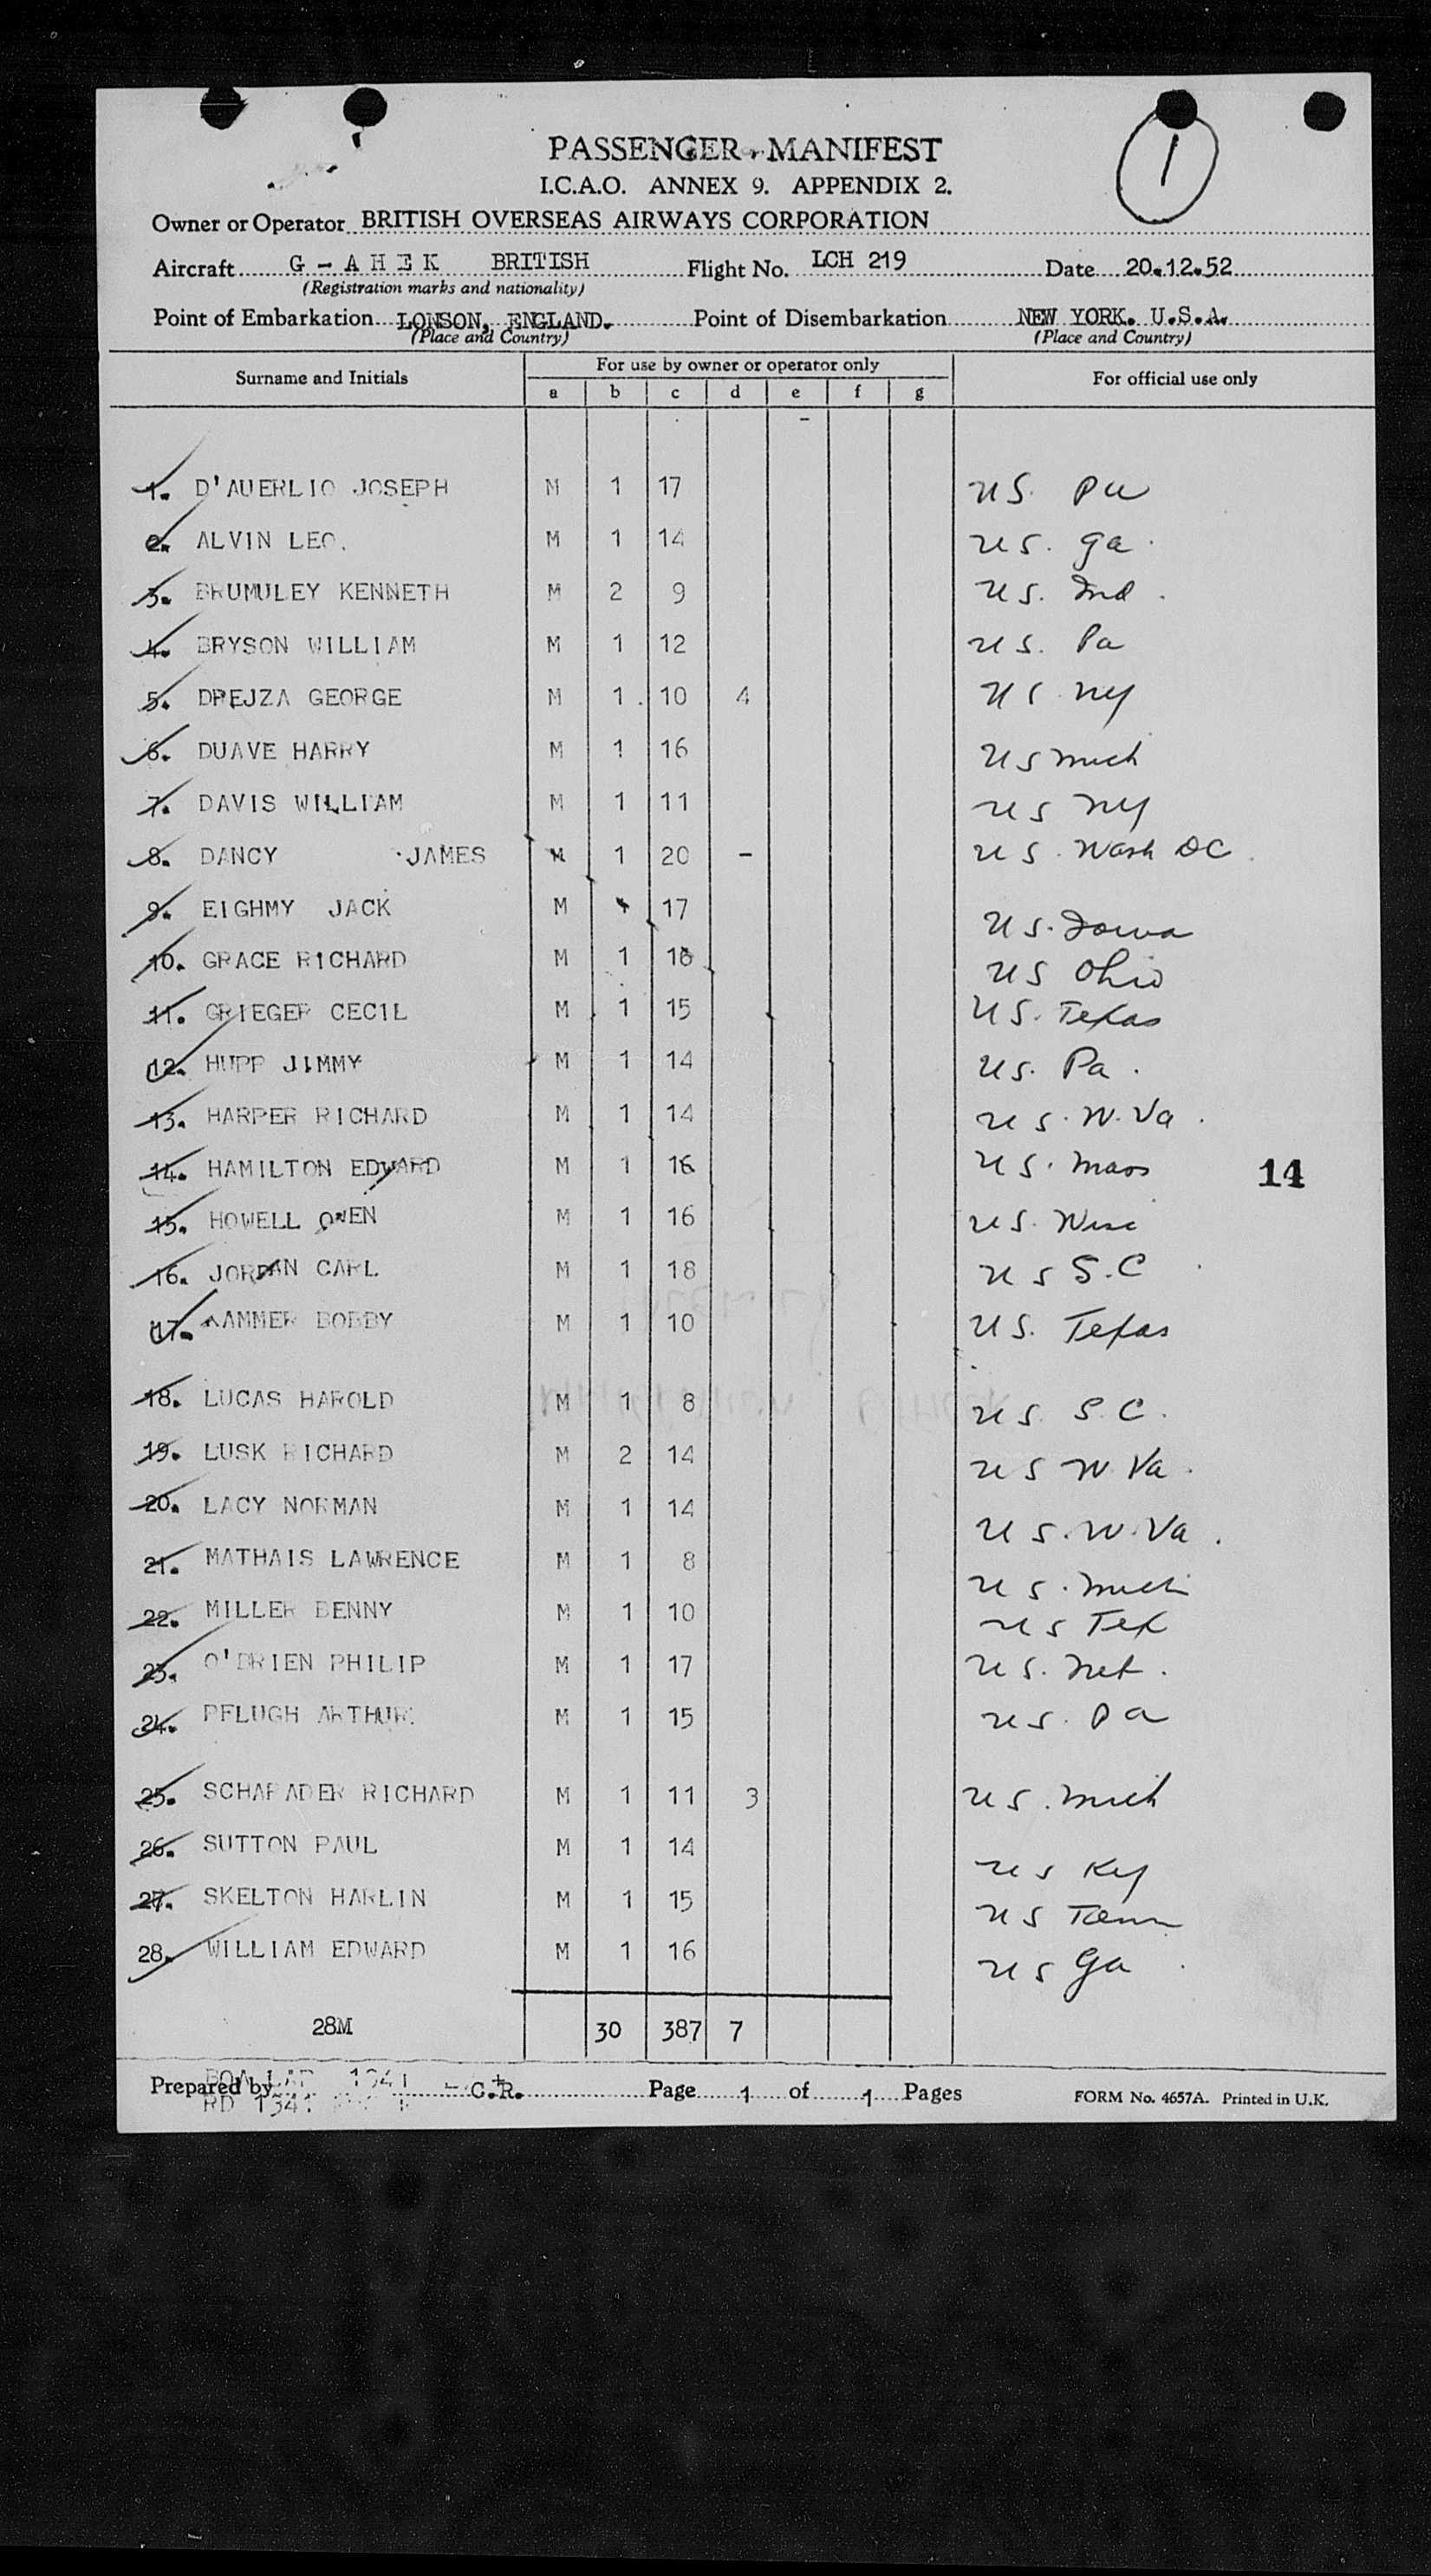 1
PASSENGER MANIFEST
I.C.A.O. ANNEX 9. APPENDIX 2.
Owner or Operator BRITISH OVERSEAS AIRWAYS CORPORATION
Aircraft G-AHEK BRITISH Flight No. LCH 219 Date 20.12.52
(Registration marks and nationality)
Point of Embarkation LONSON, ENGLAND. Point of Disembarkation NEW YORK. U.S.A.
(Place and Country) (Place and Country)
Surname and Initials For use by owner or operator only For official use only
a b c d e f g
1. D'AUERLIO JOSEPH M 1 17 US. Pa
2. ALVIN LEO. M 1 14 US. Ga.
3. BRUMULEY KENNETH M 2 9 US. Ind.
4. BRYSON WILLIAM M 1 12 US. Pa
5. DREJZA GEORGE M 1 10 4 US NY
6. DUAVE HARRY M 1 16 US Mich
7. DAVIS WILLIAM M 1 11 US NY
8. DANCY JAMES M 1 20 - US. Wash DC
9. EIGHMY JACK M 17 US. Iowa
10. GRACE RICHARD M 1 18 US Ohio
11. GRIEGER CECIL M 1 15 US. Texas
12. HUPP JIMMY M 1 14 US. Pa.
13. HARPER RICHARD M 1 14 US. W. Va.
14. HAMILTON EDWARD M 1 16 US. Mass 14
15. HOWELL OWEN M 1 16 US. Wisc
16. JORDAN CARL M 1 18 US S.C
17. KAMMER BOBBY M 1 10 US. Texas
18. LUCAS HAROLD M 1 8 US S.C.
19. LUSK RICHARD M 2 14 US W Va.
20. LACY NORMAN M 1 14 US. W. Va.
21. MATHAIS LAWRENCE M 1 8 US. Mich
22. MILLER BENNY M 1 10 US Tex
23. O'BRIEN PHILIP M 1 17 US. Neb.
24. PFLUGH ARTHUR. M 1 15 US. Pa
25. SCHARADER RICHARD M 1 11 3 US. Mich
26. SUTTON PAUL M 1 14 US Ky
27. SKELTON HARLIN M 1 15 US Tenn
28. WILLIAM EDWARD M 1 16 US Ga
28M 30 387 7
Prepared by C.R. Page 1 of 1 Pages FORM No. 4657A. Printed in U.K.